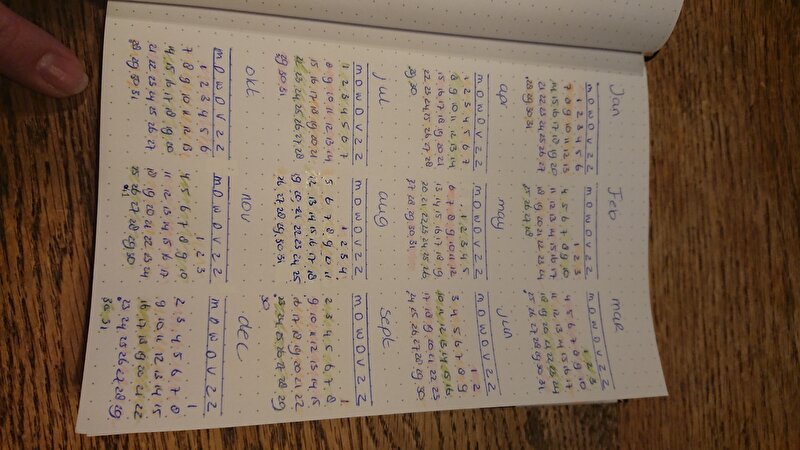 Jan
M D W D V Z Z
1 2 3 4 5 6
7 8 9 10 11 12 13
14 15 16 17 18 19 20
21 22 23 24 25 26 27
28 29 30 31
Feb
M D W D V Z Z
1 2 3
4 5 6 7 8 9 10
11 12 13 14 15 16 17
18 19 20 21 22 23 24
25 26 27 28
mar
M D W D V Z Z
1 2 3
4 5 6 7 8 9 10
11 12 13 14 15 16 17
18 19 20 21 22 23 24
25 26 27 28 29 30 31
apr
M D W D V Z Z
1 2 3 4 5 6 7
8 9 10 11 12 13 14
15 16 17 18 19 20 21
22 23 24 25 26 27 28
29 30
may
M D W D V Z Z
1 2 3 4 5
6 7 8 9 10 11 12
13 14 15 16 17 18 19
20 21 22 23 24 25 26
27 28 29 30 31
jun
M D W D V Z Z
1 2
3 4 5 6 7 8 9
10 11 12 13 14 15 16
17 18 19 20 21 22 23
24 25 26 27 28 29 30
jul
M D W D V Z Z
1 2 3 4 5 6 7
8 9 10 11 12 13 14
15 16 17 18 19 20 21
22 23 24 25 26 27 28
29 30 31
aug
M D W D V Z Z
1 2 3 4
5 6 7 8 9 10 11
12 13 14 15 16 17 18
19 20 21 22 23 24 25
26 27 28 29 30 31
sept
M D W D V Z Z
1
2 3 4 5 6 7 8
9 10 11 12 13 14 15
16 17 18 19 20 21 22
23 24 25 26 27 28 29
30
okt
M D W D V Z Z
1 2 3 4 5 6
7 8 9 10 11 12 13
14 15 16 17 18 19 20
21 22 23 24 25 26 27
28 29 30 31
nov
M D W D V Z Z
1 2 3
4 5 6 7 8 9 10
11 12 13 14 15 16 17
18 19 20 21 22 23 24
25 26 27 28 29 30
dec
M D W D V Z Z
1
2 3 4 5 6 7 8
9 10 11 12 13 14 15
16 17 18 19 20 21 22
23 24 25 26 27 28 29
30 31